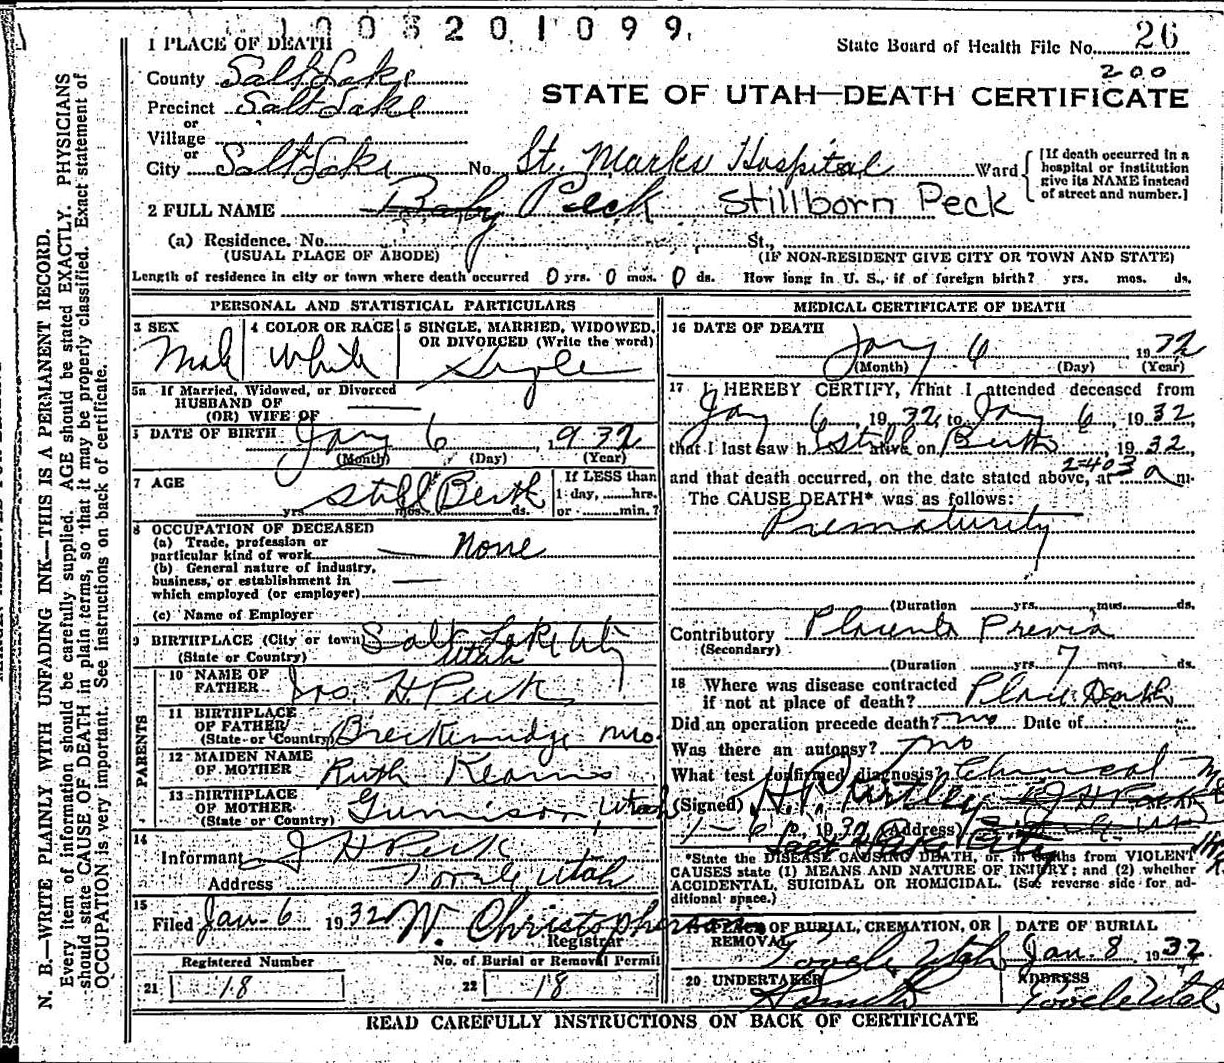 1003201099
State Board of Health File No. 26
200
STATE OF UTAH—DEATH CERTIFICATE
1 PLACE OF DEATH
County Salt Lake
Precinct Salt Lake
or
Village
or
City Salt Lake No. St. Marks Hospital Ward
[If death occurred in a
hospital or institution
give its NAME instead
of street and number.]
2 FULL NAME Baby Peck Stillborn Peck
(a) Residence. No. St.,
(USUAL PLACE OF ABODE) (IF NON-RESIDENT GIVE CITY OR TOWN AND STATE)
Length of residence in city or town where death occurred 0 yrs. 0 mos. 0 ds. How long in U. S., if of foreign birth? yrs. mos. ds.
PERSONAL AND STATISTICAL PARTICULARS
3 SEX 4 COLOR OR RACE 5 SINGLE, MARRIED, WIDOWED,
OR DIVORCED (Write the word)
Male White Single
5a If Married, Widowed, or Divorced
HUSBAND OF
(OR) WIFE OF
DATE OF BIRTH Jany 6, 1932
(Month) (Day) (Year)
7 AGE Still Berth
If LESS than
1 day, hrs.
yrs. mos. ds. or min.?
8 OCCUPATION OF DECEASED
(a) Trade, profession or
particular kind of work None
(b) General nature of industry,
business, or establishment in
which employed (or employer)
(c) Name of Employer
9 BIRTHPLACE (City or town) Salt Lake City
(State or Country) Utah
PARENTS
10 NAME OF
FATHER Jos. H Peck
11 BIRTHPLACE
OF FATHER
(State or Country) Breckenridge Mo.
12 MAIDEN NAME
OF MOTHER Ruth Kearns
13 BIRTHPLACE
OF MOTHER
(State or Country) Gunnison, Utah
14
Informant J H Peck
Address Tooele Utah
15
Filed Jan-6 1932 W. Christopherson
Registrar
Registered Number No. of Burial or Removal Permit
21 18 22 18
MEDICAL CERTIFICATE OF DEATH
16 DATE OF DEATH
Jany 6 1932
(Month) (Day) (Year)
17 I HEREBY CERTIFY, That I attended deceased from
Jany 6, 1932, to Jany 6, 1932
that I last saw h Still alive on Berth 1932,
and that death occurred, on the date stated above, at 2:40 a m.
The CAUSE DEATH* was as follows:
Prematurity
(Duration yrs. mos. ds.
Contributory Placenta Previa
(Secondary)
(Duration yrs. 7 mos. ds.
18 Where was disease contracted
if not at place of death? Place Death
Did an operation precede death? no Date of
Was there an autopsy? no
What test confirmed diagnosis? Clinical
(Signed) H.P. Kirtley
1-6, 1932 (Address)
Salt Lake City
*State the DISEASE CAUSING DEATH, or, in deaths from VIOLENT
CAUSES state (1) MEANS AND NATURE OF INJURY; and (2) whether
ACCIDENTAL, SUICIDAL OR HOMICIDAL. (See reverse side for ad-
ditional space.)
PLACE OF BURIAL, CREMATION, OR
REMOVAL
Tooele Utah
DATE OF BURIAL
Jan. 8 1932
20 UNDERTAKER
ADDRESS
Tooele Utah
READ CAREFULLY INSTRUCTIONS ON BACK OF CERTIFICATE
N. B.—WRITE PLAINLY WITH UNFADING INK—THIS IS A PERMANENT RECORD.
Every item of information should be carefully supplied. AGE should be stated EXACTLY. PHYSICIANS
should state CAUSE OF DEATH in plain terms, so that it may be properly classified. Exact statement of
OCCUPATION is very important. See instructions on back of certificate.